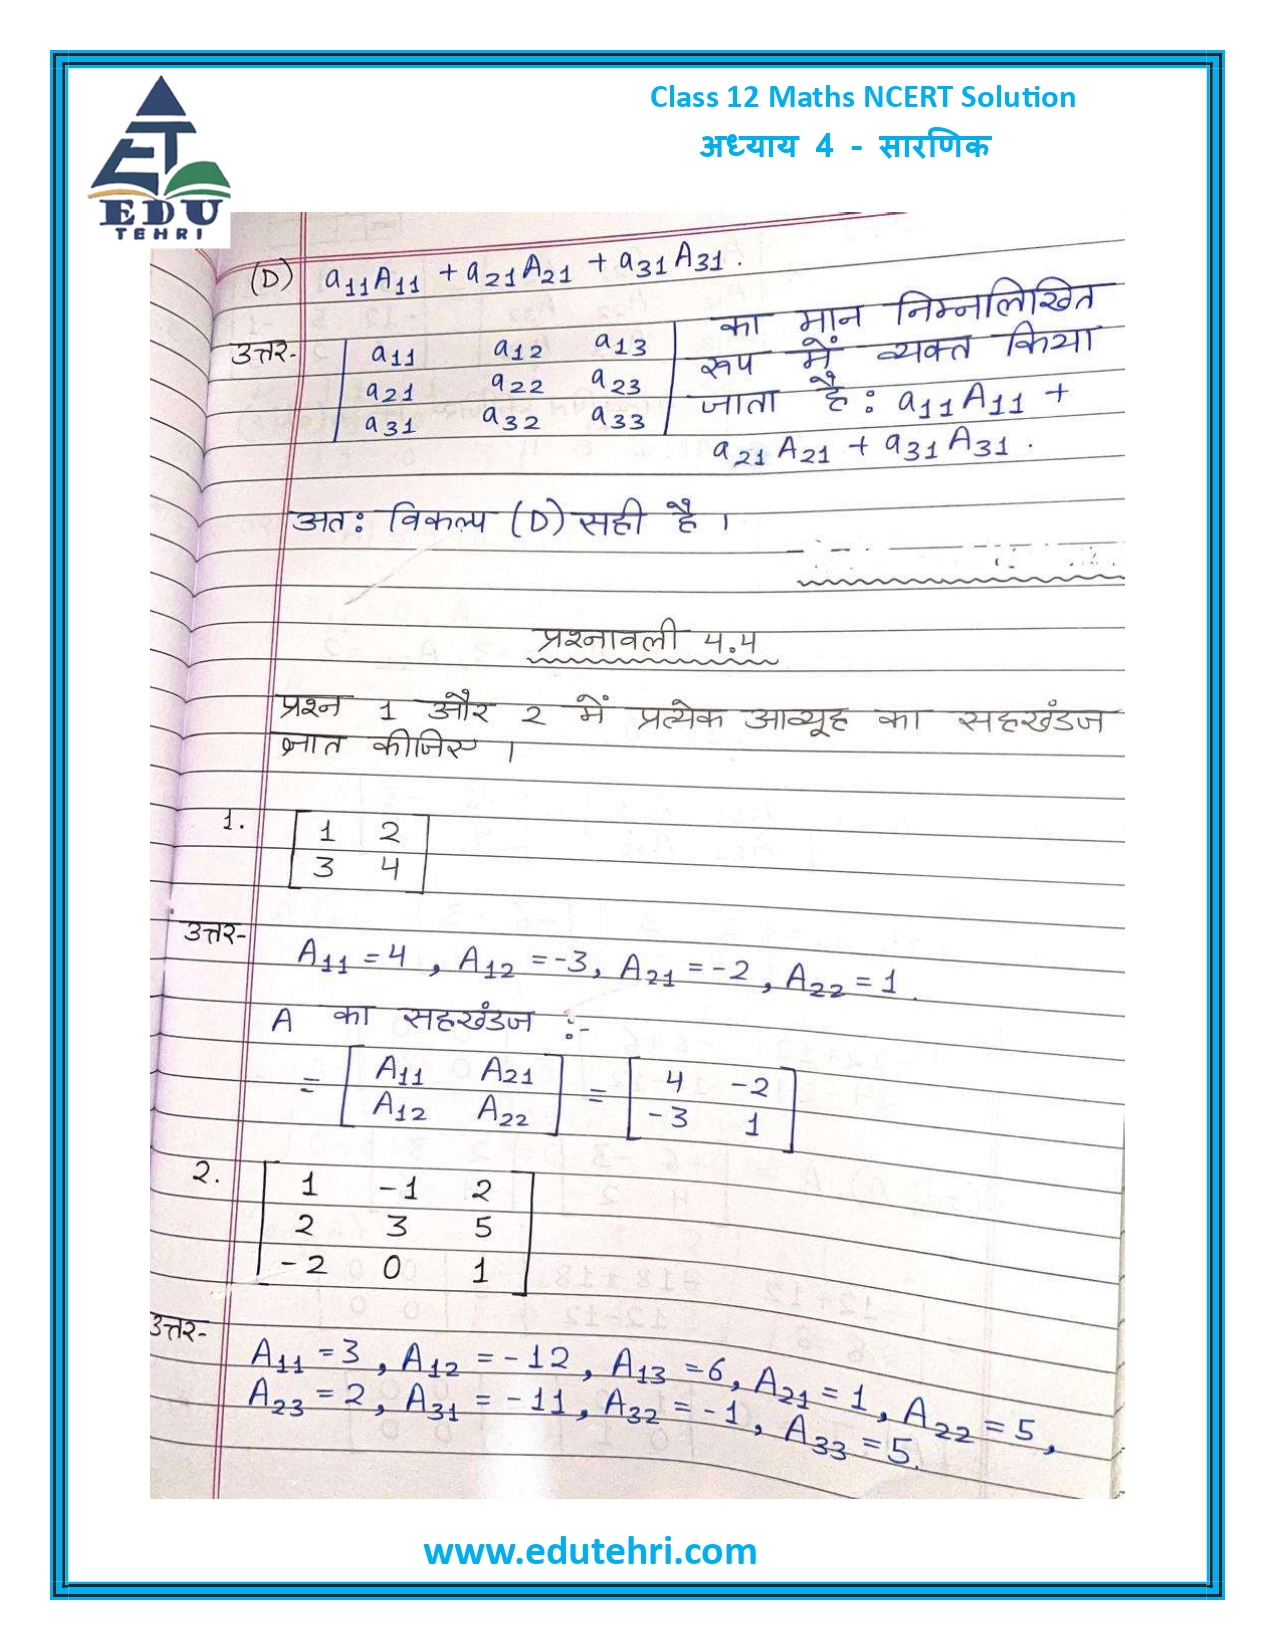 Class 12 Maths NCERT Solution
अध्याय 4 - सारणिक
ET
EDU
TEHRI
(D) a11A11 + a21A21 + a31A31.
उत्तर- | a11 a12 a13 | का मान निम्नलिखित
| a21 a22 a23 | रूप में व्यक्त किया
| a31 a32 a33 | जाता है: a11A11 +
a21A21 + a31A31.
अतः विकल्प (D) सही है ।
प्रश्नावली 4.4
प्रश्न 1 और 2 में प्रत्येक आव्यूह का सहखंडज
ज्ञात कीजिए ।
1. [ 1 2
3 4 ]
उत्तर- A11 = 4, A12 = -3, A21 = -2, A22 = 1.
A का सहखंडज :-
= [ A11 A21 ] = [ 4 -2 ]
[ A12 A22 ] [ -3 1 ]
2. [ 1 -1 2
2 3 5
-2 0 1 ]
उत्तर- A11 = 3, A12 = -12, A13 = 6, A21 = 1, A22 = 5,
A23 = 2, A31 = -11, A32 = -1, A33 = 5.
www.edutehri.com